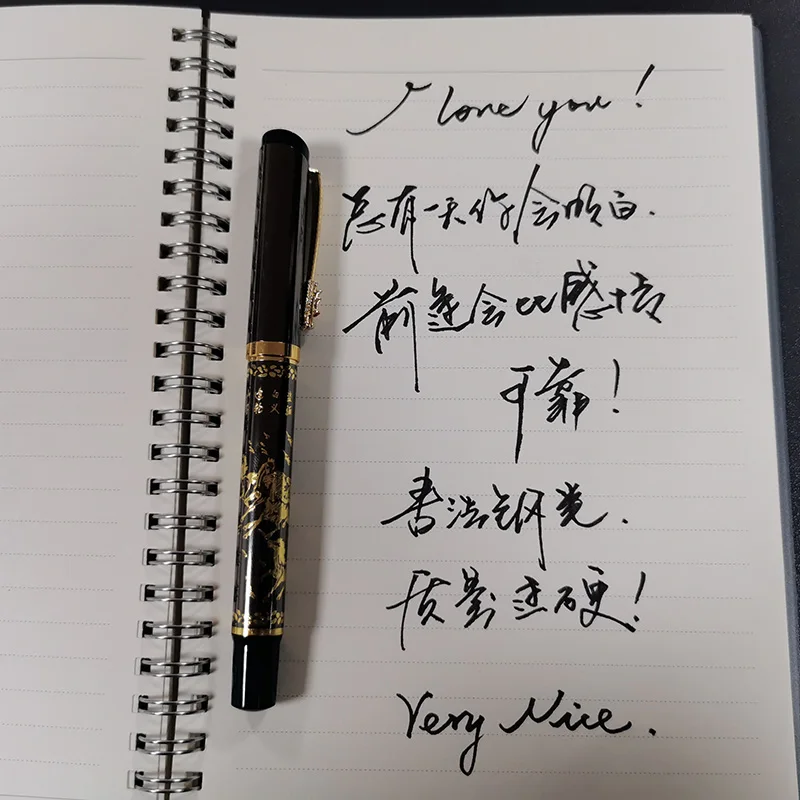 I love you!
总有一天你会明白.
前途会比感情
可靠!
书法钢笔.
质量过硬!
Very Nice.